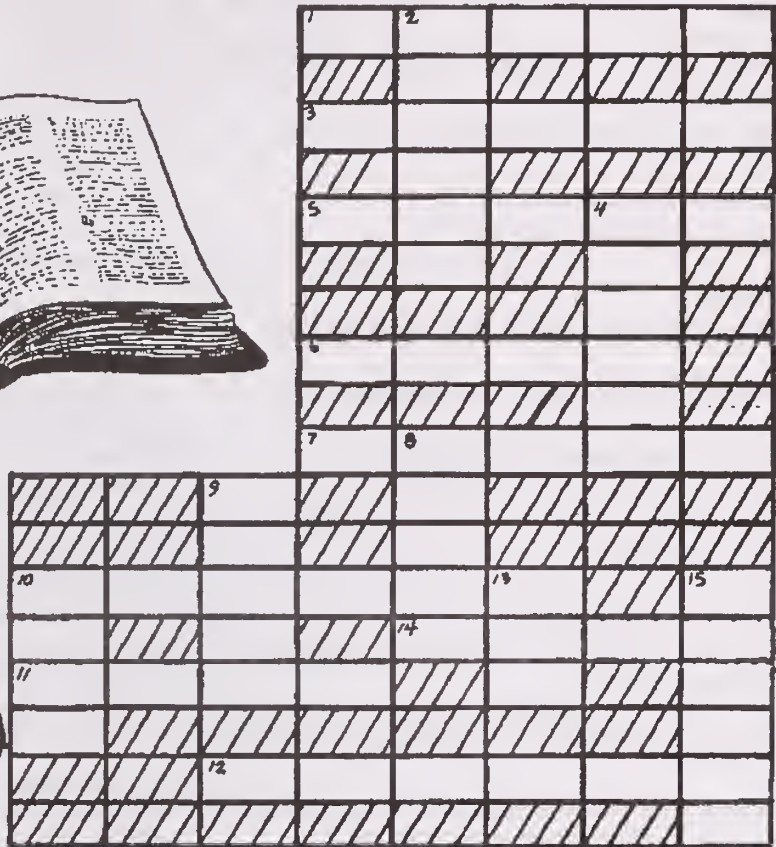 1 2
3
5 4
6
7 8
9
10 13 15
14
11
12